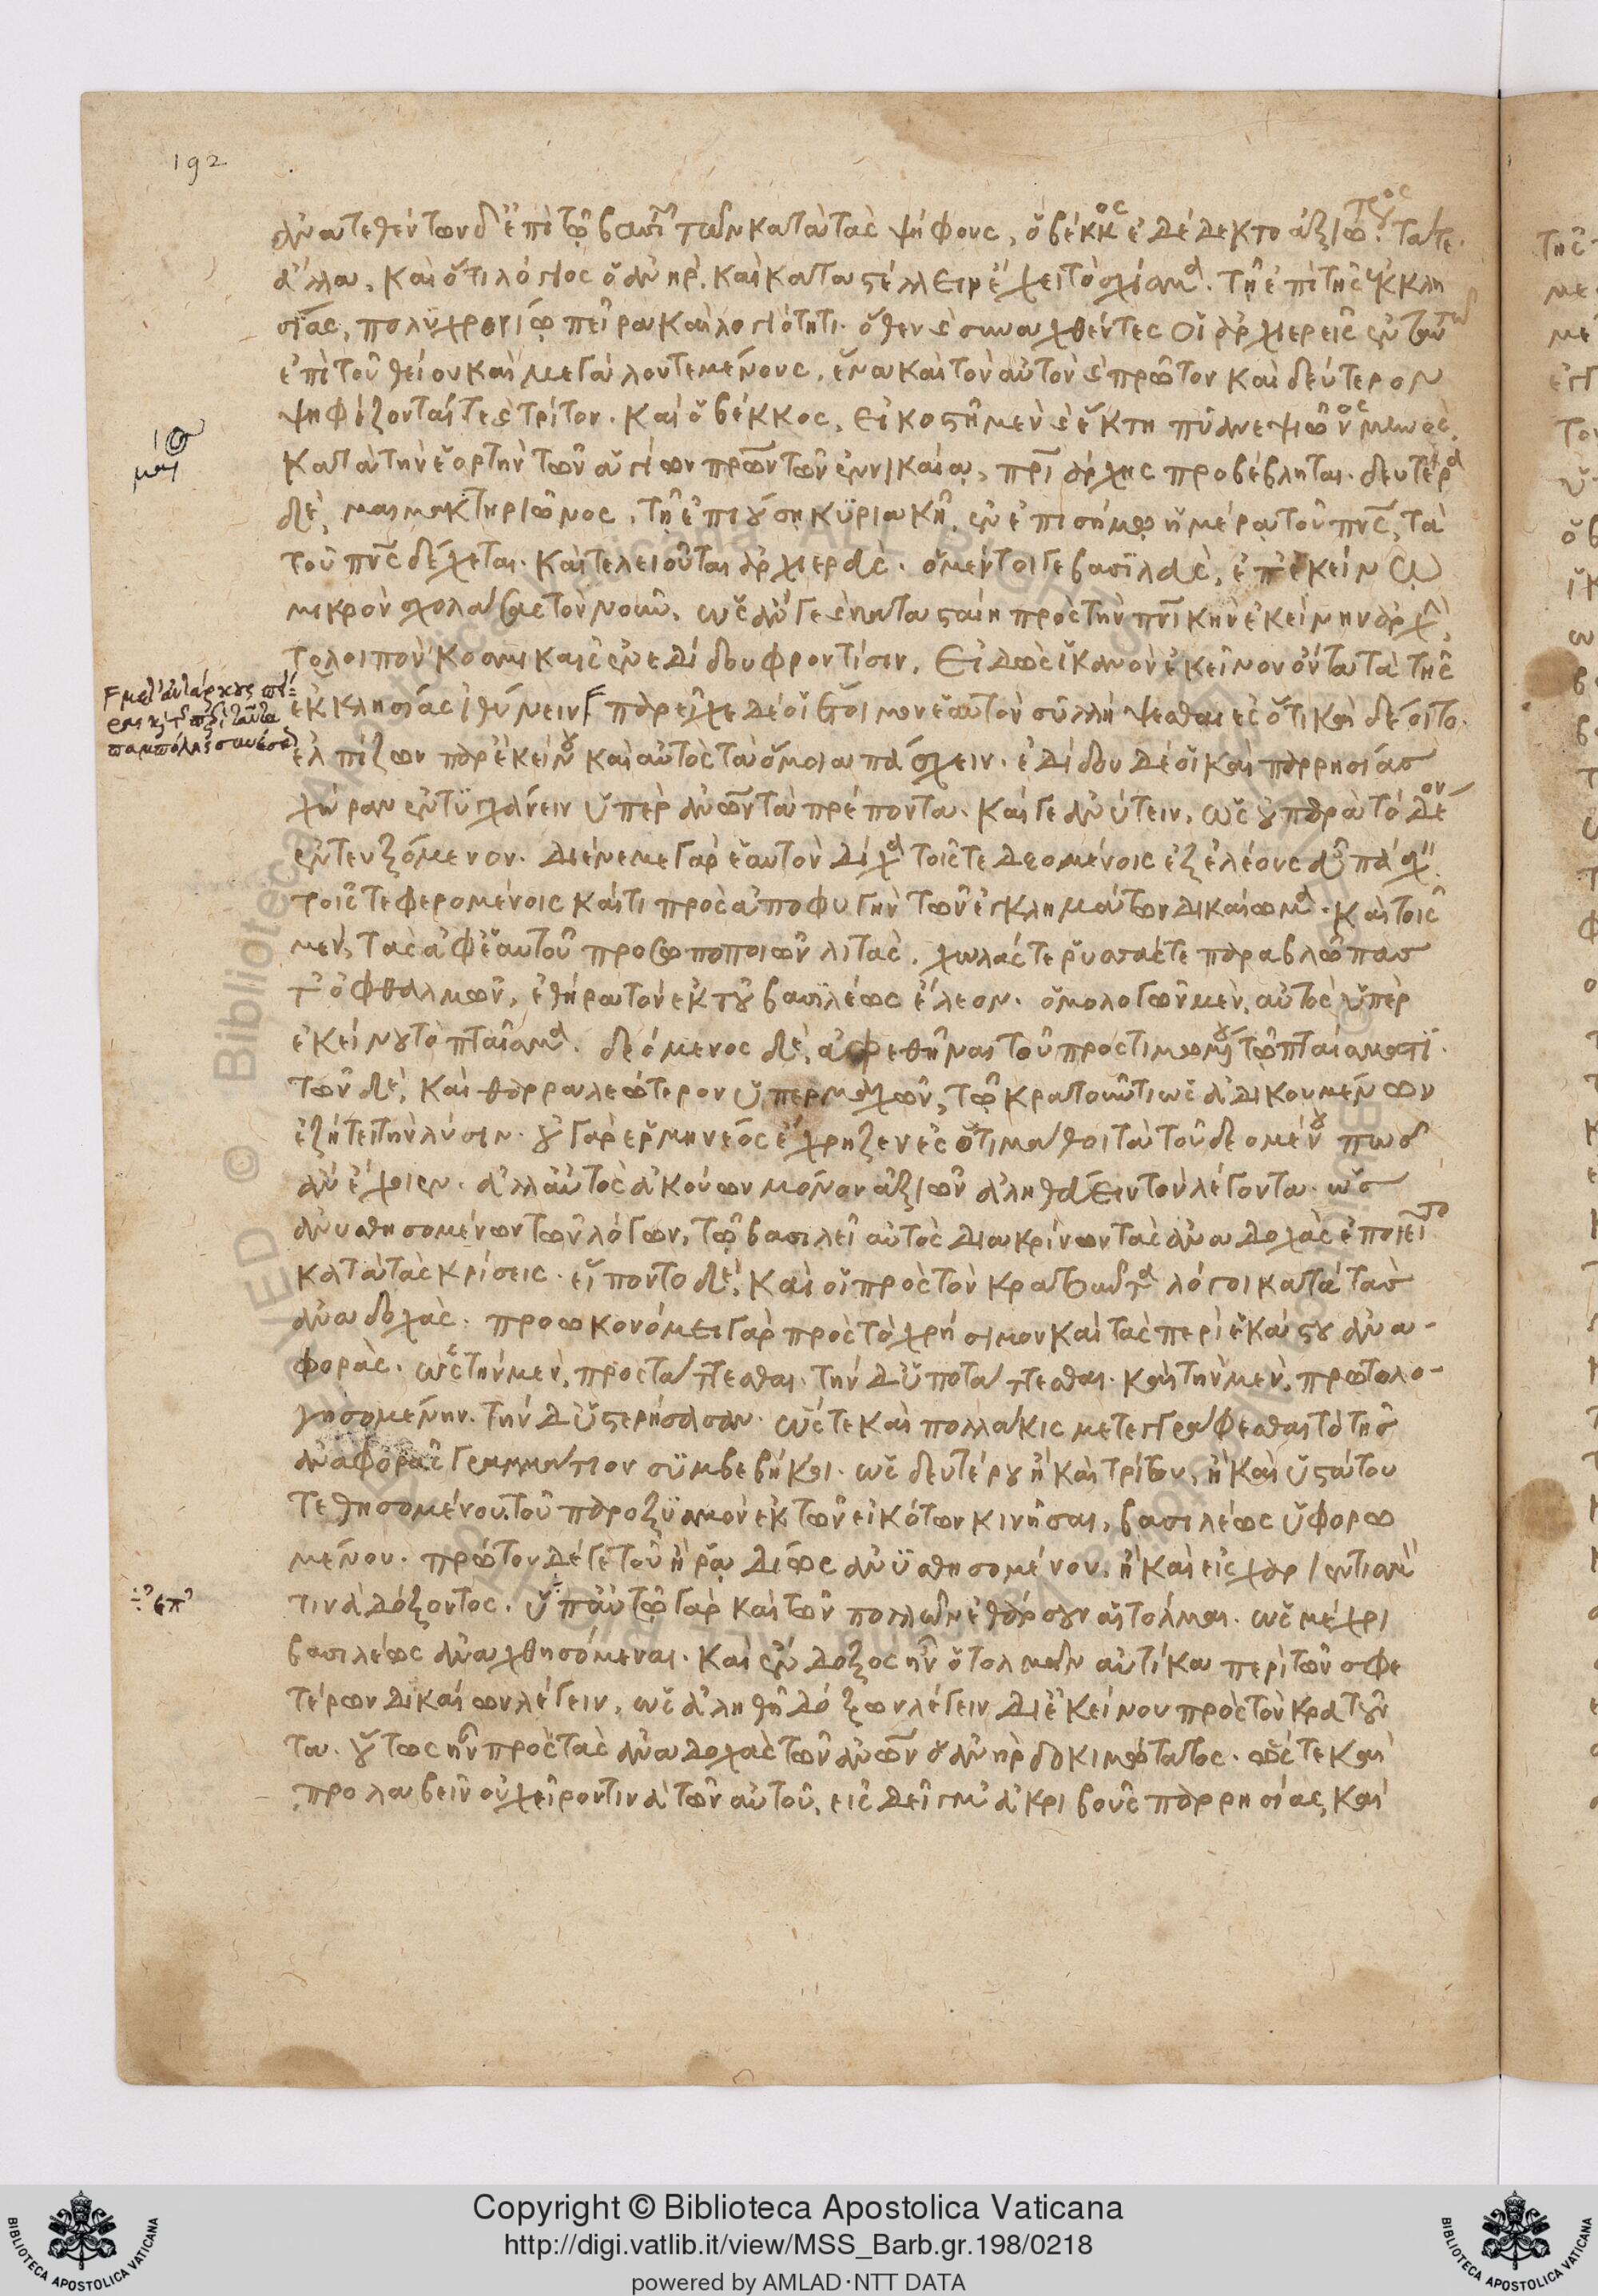 192
ἀνατεθέντων δ' ἐπὶ τῷ βασιλεῖ τῶν κατὰ τὰς ψήφους, ὁ βέκκος ἐδέδεκτο ἀξίως πρὸς τά τε
ἄλλα, καὶ ὅτι λόγιος ὁ ἀνήρ. καὶ καταστέλλειν ἔχει τὸ σχίσμα. τῇ ἐπὶ τῆς ἐκκλη
σίας, πολυχρονίῳ πείρᾳ καὶ λογιότητι. ὅθεν καὶ συναχθέντες οἱ ἀρχιερεῖς ἐν ταυτῷ
ἐπὶ τοῦ θείου καὶ μεγάλου τεμένους, ἕνα καὶ τὸν αὐτὸν καὶ πρῶτον καὶ δεύτερον
ψηφίζονταί τε καὶ τρίτον. καὶ ὁ βέκκος, εἰκοστῇ μὲν καὶ ἕκτῃ πυανεψιῶνος μηνὸς,
κατὰ τὴν ἑορτὴν τῶν ἁγίων πρων τῶν ἐν νικαίᾳ, πρι άρχης προβέβληται. δευτέρα
δὲ, μαιμακτηριῶνος, τῇ ἐπιούσῃ κυριακῇ, ἐν ἐπισήμῳ ἡμέρᾳ τοῦ πνς, τὰ
τοῦ πνς δέχεται. καὶ τελειοῦται ἀρχιερεὺς. ὁ μέντοιγε βασιλεὺς, ἐπ' ἐκείνῳ
μικρὸν σχολάσας τὸν νοῦν, ὡς ἄν γε καὶ κατασταίη πρὸς τὴν πνικὴν ἐκείνην ἀρχὴν,
τὸ λοιπὸν κοσμικαῖς ἐνεδίδου φροντίσιν. εἰδὼς ἱκανὸν ἐκεῖνον ὄντα τὰ τῆς
ἐκκλησίας ἰθύνειν παρεῖχε δέ οἱ ἕτοιμον ἑαυτὸν συλλήψεσθαι ἐς ὅτι καὶ δέοιτο.
ἐλπίζων παρ' ἐκείνου καὶ αὐτὸς τὰ ὅμοια πάσχειν. ἐδίδου δέ οἱ καὶ παρρησίας
χώραν ἐντυγχάνειν ὑπὲρ ἀνων τὰ πρέποντα. καί γε ἀνύτειν, ὡς οὐ παρὰ τὸ δέον
ἐντευξόμενον. διένεμε γὰρ ἑαυτὸν δίχα τοῖς τε δεομένοις ἐξ ἐλέους εὖ πάσχειν.
τοῖς τε φερομένοις καί τι πρὸς ἀποφυγὴν τῶν ἐγκλημάτων δικαίωμα. καὶ τοῖς
μὲν, τὰς ἀφ' ἑαυτοῦ προσωποποιῶν λιτὰς, χωλάς τε ῥυσσάς τε παραβλῶπας
τ' ὀφθαλμῶν, ἐθήρα τὸν ἐκ τοῦ βασιλέως ἔλεον. ὁμολογῶν μὲν αὐτὸς ὑπὲρ
ἐκείνου τὸ πταῖσμα. δεόμενος δὲ, ἀφεθῆναι τοῦ προστιμωμένου τῷ πταίσματι.
τῶν δὲ, καὶ θαρραλεώτερον ὑπερμαχῶν, τῷ κρατοῦντι ὡς ἀδικουμένων
ἐζήτει τὴν λύσιν. οὐ γὰρ ἑρμηνέος ἔχρηζεν ἐς ὅτι μάθοι τὰ τοῦ δεομένου πῶς
ἂν ἔχοιεν. ἀλλ' αὐτὸς ἀκούων μόνον ἀξιῶν ἀληθεύειν τὸν λέγοντα. ὡς
ἀνυσθησομένων τῶν λόγων, τῷ βασιλεῖ αὐτὸς διακρίνων τὰς ἀναδοχὰς ἐποιεῖτο
κατὰ τὰς κρίσεις. εἵποντο δὲ, καὶ οἱ πρὸς τὸν κρατοῦντα λόγοι κατὰ τὰς
ἀναδοχὰς. προωκονόμει γὰρ πρὸς τὸ χρήσιμον καὶ τὰς περὶ ἑκάστου ἀνα-
φορὰς. ὡς τὴν μὲν, προστάττεσθαι. τὴν δ' ὑποτάττεσθαι. καὶ τὴν μὲν, πρωτολο-
γησομένην. τὴν δ' ὑστερήσασαν. ὥστε καὶ πολλάκις μετεγγράφεσθαι τὸ τῆς
ἀναφορᾶς γραμμάτιον συμβεβήκει. ὡς δευτέρου ἢ καὶ τρίτου, ἢ καὶ ὑστάτου
τεθησομένου τοῦ παροξυσμὸν ἐκ τῶν εἰκότων κινῆσαι, βασιλέως ὑφορω
μένου. πρώτου δέ γε τοῦ ἢ ῥᾳδίως ἀνυσθησομένου, ἢ καὶ εἰς χαριεντισμόν
τινα δόξοντος. ὑπ' αὐτῷ γὰρ καὶ τῶν πολλῶν ἐθάρσουν αἱ τόλμαι. ὡς μέχρι
βασιλέως ἀναχθησόμεναι. καὶ ἔνδοξος ἦν ὁ τολμῶν αὐτίκα περὶ τῶν σφε
τέρων δικαίων λέγειν, ὡς ἀληθῆ δόξων λέγειν δι' ἐκείνου πρὸς τὸν κρατοῦν
τα. οὕτως ἦν πρὸς τὰς ἀναδοχὰς τῶν ἀνων ὁ ἀνὴρ δοκιμώτατος. ὥστε καὶ
προλαβεῖν οὐ χεῖρόν τινα τῶν αὐτοῦ, εἰς δεῖγμα ἀκριβοῦς παρρησίας, καὶ
Copyright © Biblioteca Apostolica Vaticana
http://digi.vatlib.it/view/MSS_Barb.gr.198/0218
powered by AMLAD·NTT DATA
BIBLIOTECA APOSTOLICA VATICANA
BIBLIOTECA APOSTOLICA VATICANA